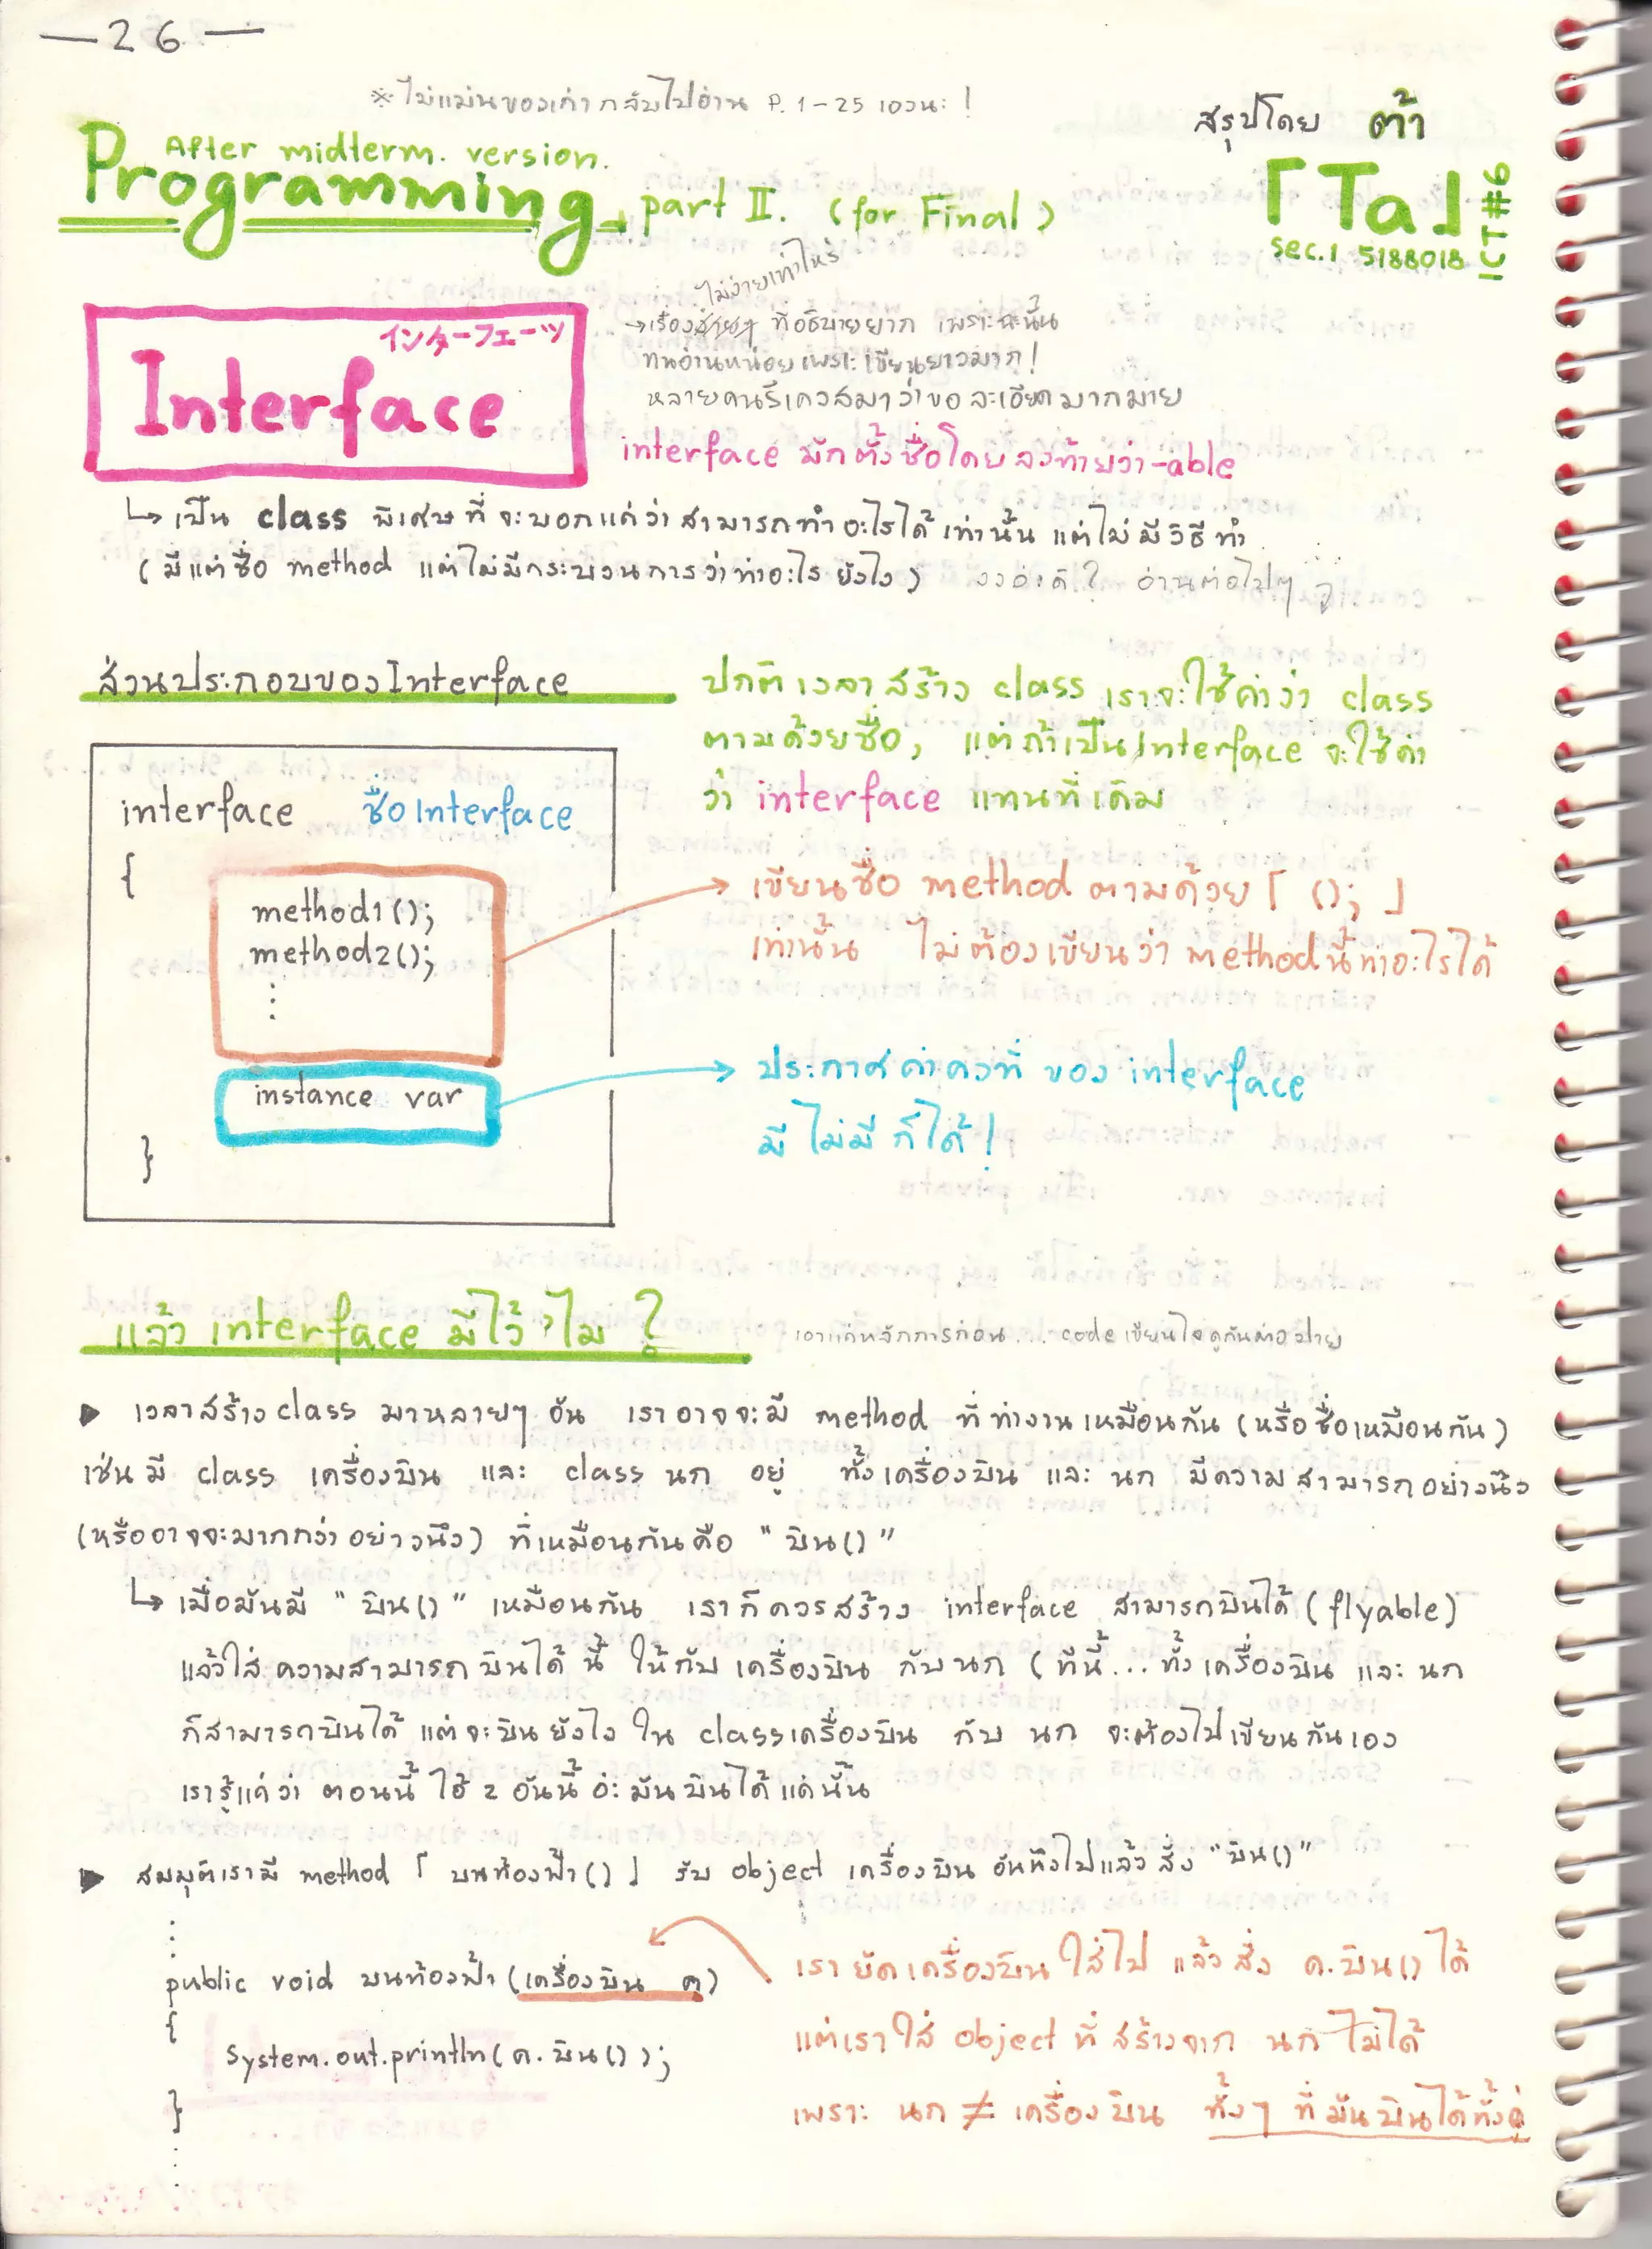 —26—
※ ไม่แม่นของเก่า กลับไปอ่าน P. 1-25 เองนะ !
สรุปโดย ต้า
After midterm. version.
Programming part II. (for Final)
「Ta」
ICT#6
sec.1 5188018
ไม่ง่ายเท่าไหร่
→เรื่องง่ายๆ ที่อธิบายยาก เพราะฉะนั้น
ทนอ่านหน่อยเพราะเขียนยาวมาก!
หลายคนรีเควสมาว่าขอละเอียดมากมาย
インターフェーツ
Interface
interface มักตั้งชื่อโดยลงท้ายว่า-able
↳ เป็น class พิเศษที่จะบอกแค่ว่าสามารถทำอะไรได้เท่านั้น แต่ไม่มีวิธีทำ
(มีแต่ชื่อ method แต่ไม่มีกระบวนการว่าทำอะไร ยังไง) งงอ่ะดิ? อ่านต่อไปๆ
ส่วนประกอบของInterface
ปกติเวลาสร้าง class เราจะใช้คำว่า class
ตามด้วยชื่อ, แต่ถ้าเป็นInterface จะใช้คำ
ว่า interface แทนที่เดิม
interface ชื่อInterface
{
method1();
method2();
⋮
เขียนชื่อ method ตามด้วย「 (); 」
เท่านั้น ไม่ต้องเขียนว่า methodนี้ทำอะไรได้
instance var
ประกาศค่าคงที่ ของ interface
มี ไม่มี ก็ได้!
}
แล้ว interface มีไว้ทำไม ?
เอาแค่หลักการก่อน.... codeเขียนไงดูกันต่อไป
▶ เวลาสร้างclass มาหลายๆ อัน เราอาจจะมี method ที่ทำงานเหมือนกัน (หรือชื่อเหมือนกัน)
เช่นมี class เครื่องบิน และ class นก อยู่ ทั้งเครื่องบิน และ นก มีความสามารถอย่างนึง
(หรืออาจจะมากกว่าอย่างนึง) ที่เหมือนกันคือ "บิน()"
↳ เมื่อมันมี "บิน()" เหมือนกัน เราก็ควรสร้าง interface สามารถบินได้ (flyable)
แล้วใส่ความสามารถบินได้นี้ ให้กับ เครื่องบิน กับนก (ทีนี้...ทั้งเครื่องบิน และ นก
ก็สามารถบินได้ แต่จะบินยังไง ใน classเครื่องบิน กับ นก จะต้องไปเขียนกันเอง
เรารู้แค่ว่า ตอนนี้ ไอ้ 2 อันนี้ อ่ะ มันบินได้ แค่นั้น
▶ สมมุติเรามี method 「บนท้องฟ้า()」 รับ object เครื่องบิน อันนึงไปแล้วสั่ง "บิน()"
⋮
public void บนท้องฟ้า (เครื่องบิน ค)
{
System.out.println(ค.บิน());
}
⋮
เรายัดเครื่องบินใส่ไป แล้วสั่ง ค.บิน() ได้
แต่เราใส่ object ที่สร้างจาก นก ไม่ได้
เพราะ นก ≠ เครื่องบิน ทั้งๆ ที่มันบินได้ทั้งคู่